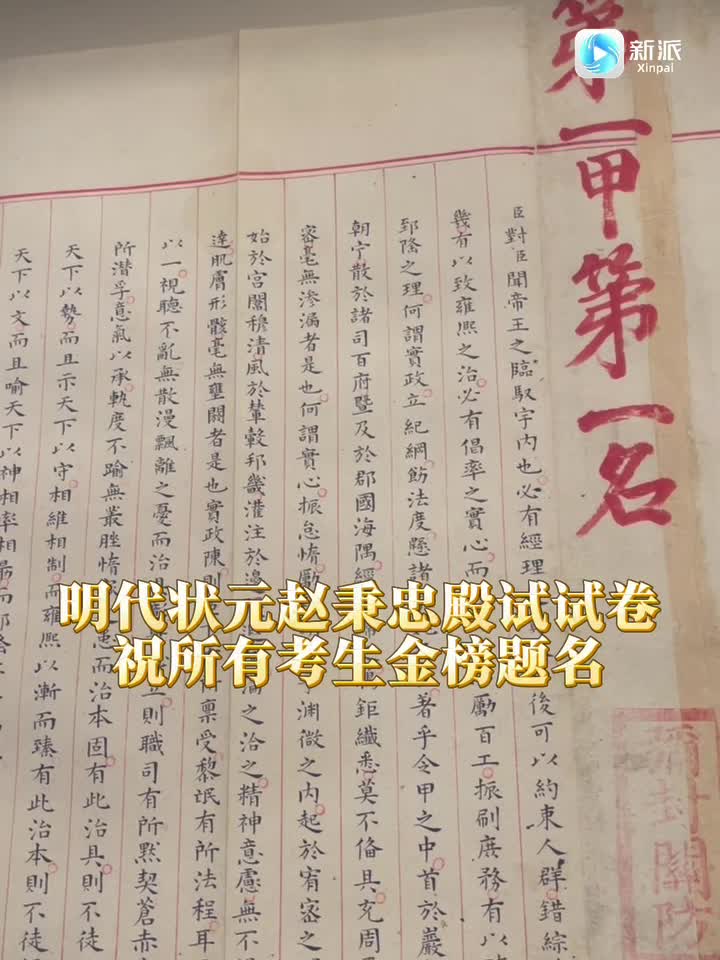 新派
Xinpai
第一甲第一名
臣對臣聞帝王之臨馭宇內也必有經理 後可以約束人群錯綜
幾有以致雍熙之治必有倡率之實心而 勵百工振刷庶務有以
郅隆之理何謂實政立紀綱飭法度懸諸 著乎令甲之中首於巖
朝宁散於諸司百府暨及於郡國海隅經 鉅纖悉莫不備具充周
密毫無滲漏者是也何謂實心振怠惰勵 淵微之內起於宥密之
始於宮闈穆清風於輦轂邦畿灌注於邊 之治之精神意慮無不
達肌膚形骸毫無壅閼者是也實政陳則 稟受黎氓有所法程耳
以一視聽不亂無散漫飄離之憂而治 立則職司有所默契蒼赤
所潛孚意氣以承軌度不踰無叢脞惰 患而治本固有此治具則不徒
天下以勢而且示天下以守相維相制而雍熙以漸而臻有此治本則不徒
天下以文而且喻天下以神相率相勗而
彌封關防
明代状元赵秉忠殿试试卷
祝所有考生金榜题名